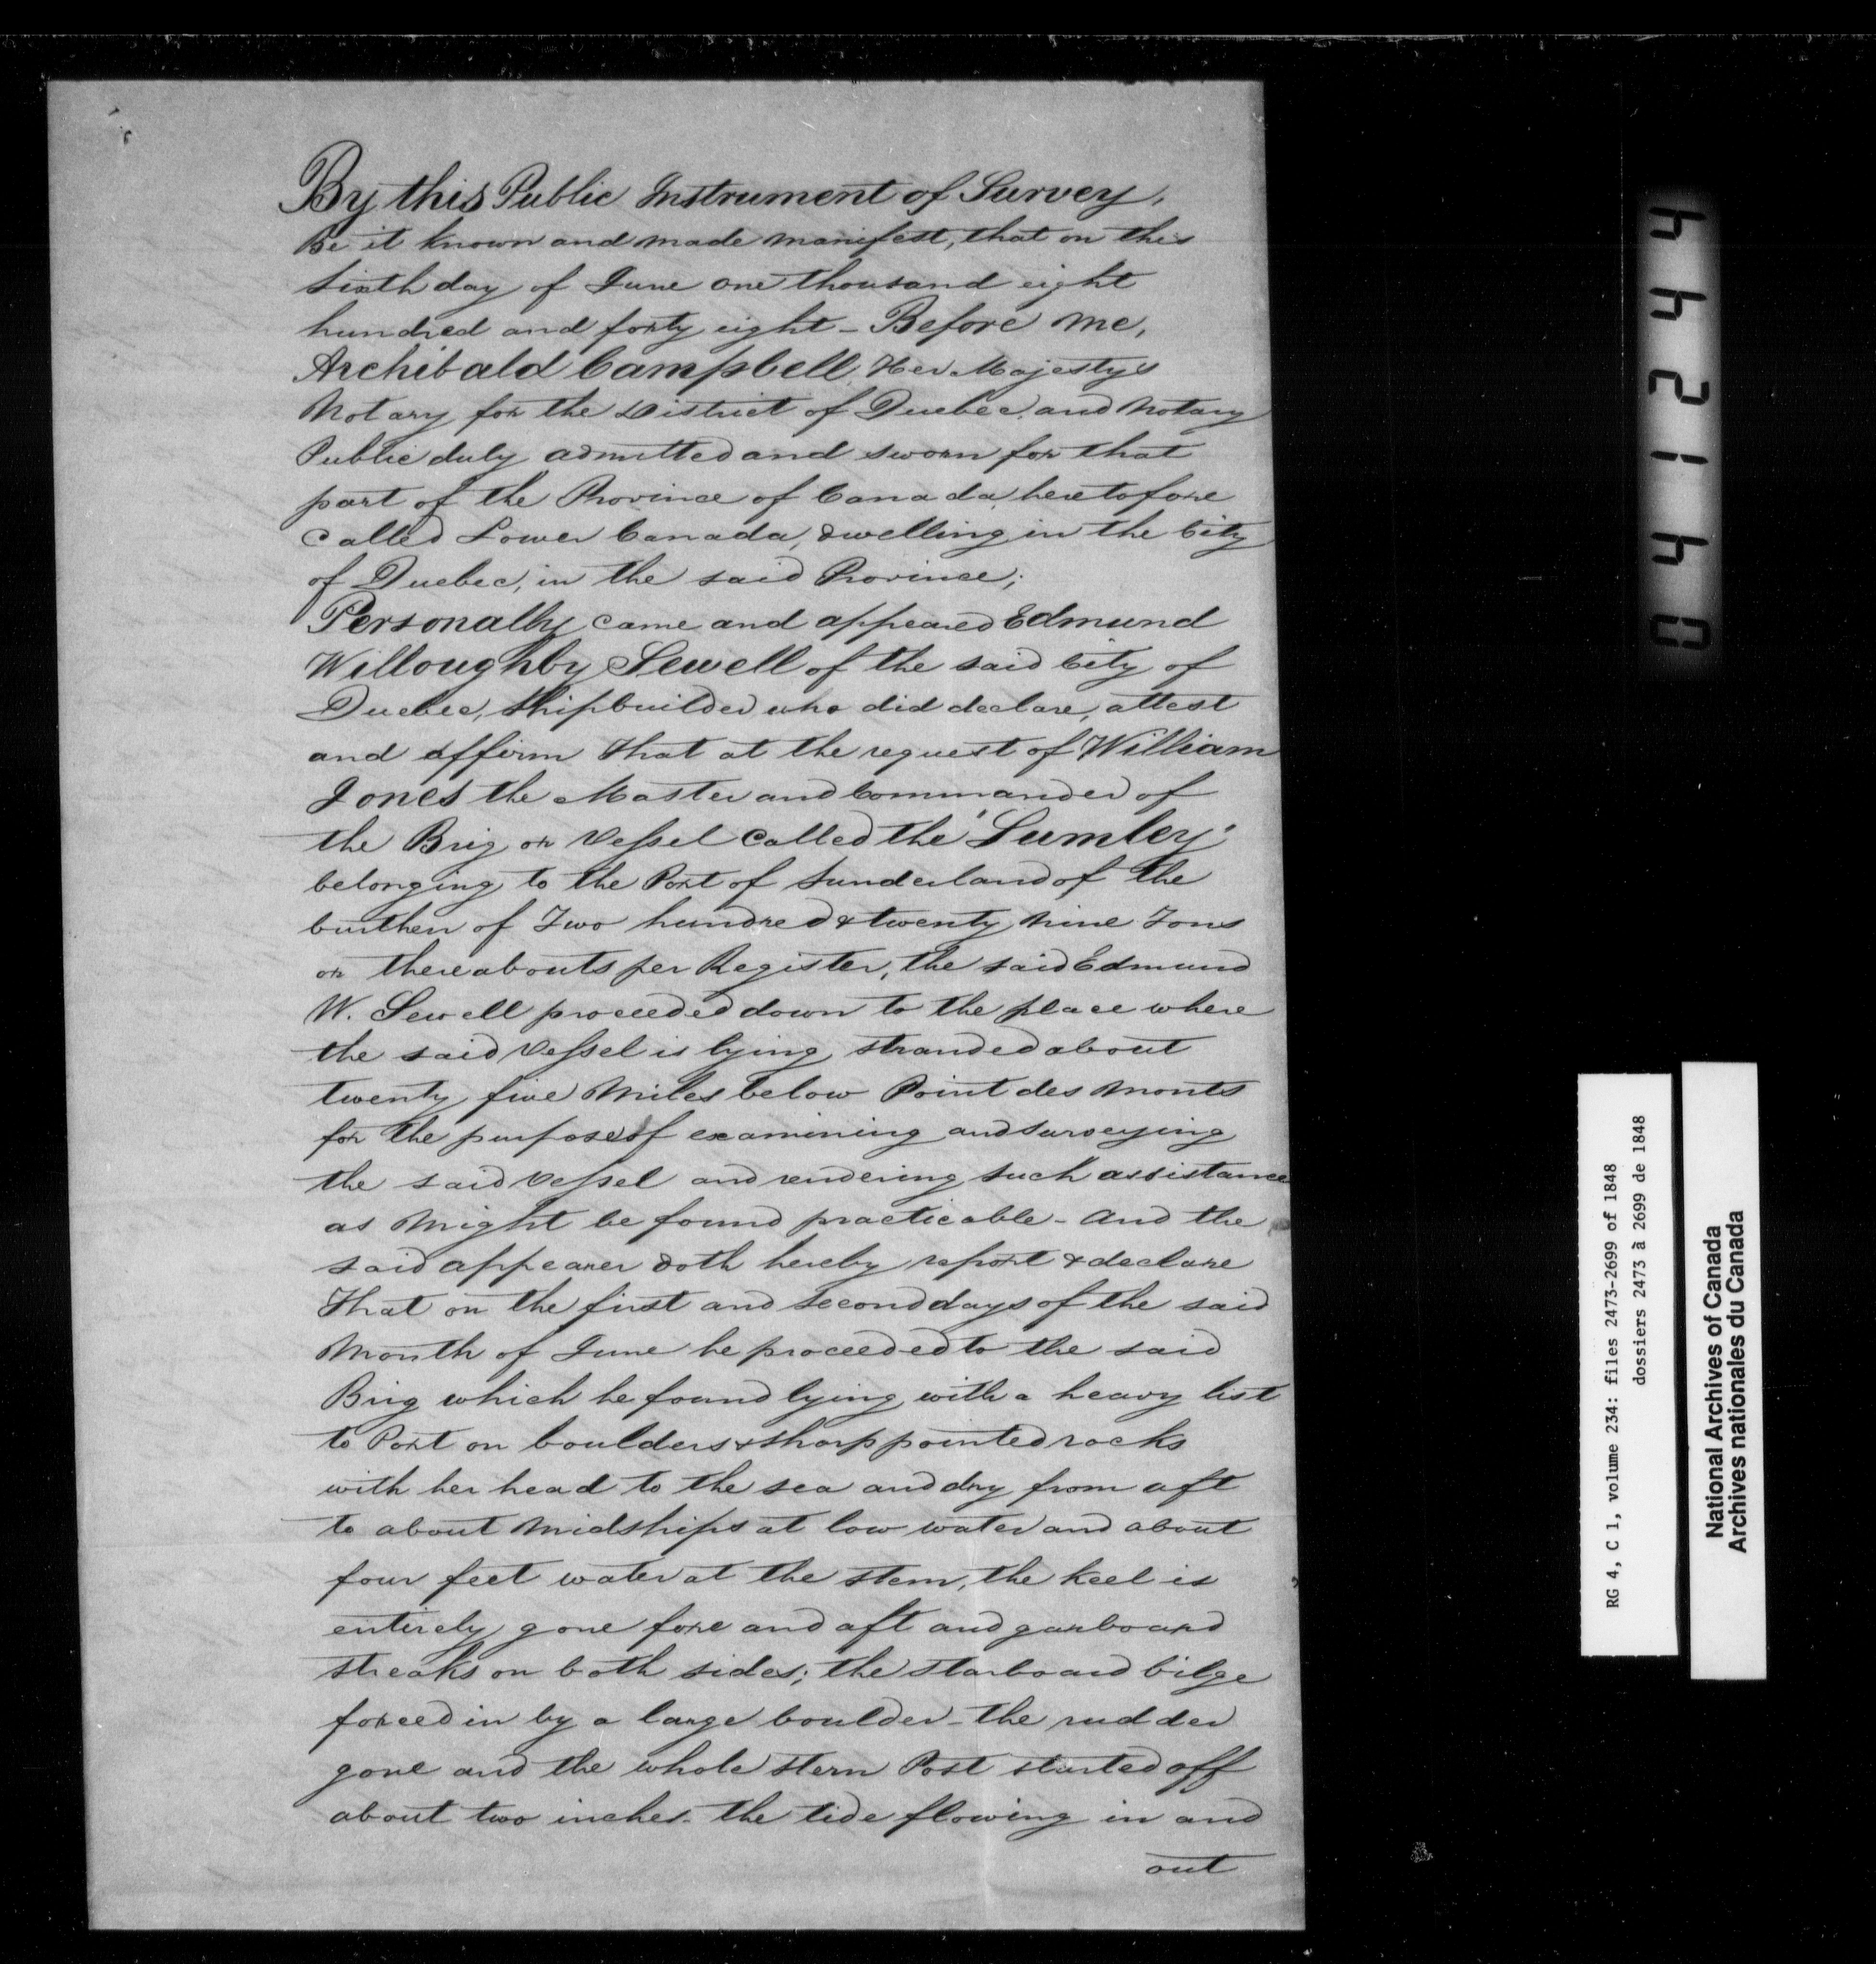 By this Public Instrument of Survey,
Be it known and made manifest, that on this
sixth day of June one thousand eight
hundred and forty eight - Before me,
Archibald Campbell, Her Majesty's
Notary for the District of Quebec, and Notary
Public duly admitted and sworn for that
part of the Province of Canada, heretofore
called Lower Canada, dwelling in the City
of Quebec, in the said Province;
Personally came and appeared Edmund
Willoughby Sewell of the said City of
Quebec, Shipbuilder who did declare, attest
and affirm that at the request of William
Jones the Master and Commander of
the Brig or Vessel called the "Lumley"
belonging to the Port of Sunderland of the
burthen of Two hundred & twenty nine Tons
or thereabouts per Register, the said Edmund
W. Sewell proceeded down to the place where
the said Vessel is lying stranded about
twenty five Miles below Point des Monts
for the purpose of examining and surveying
the said Vessel and rendering such assistance
as might be found practicable - And the
said appearer doth hereby report & declare
That on the first and second days of the said
Month of June he proceeded to the said
Brig which he found lying with a heavy list
to Port on boulders & sharp pointed rocks
with her head to the sea and dry from aft
to about midships at low water and about
four feet water at the stem, the keel is
entirely gone fore and aft and garboard
streaks on both sides; the starboard bilge
forced in by a large boulder - the rudder
gone and the whole stern Post started off
about two inches - the tide flowing in and
out
0 4 1 2 4 4
RG 4, C 1, volume 234: files 2473-2699 of 1848
dossiers 2473 à 2699 de 1848
National Archives of Canada
Archives nationales du Canada